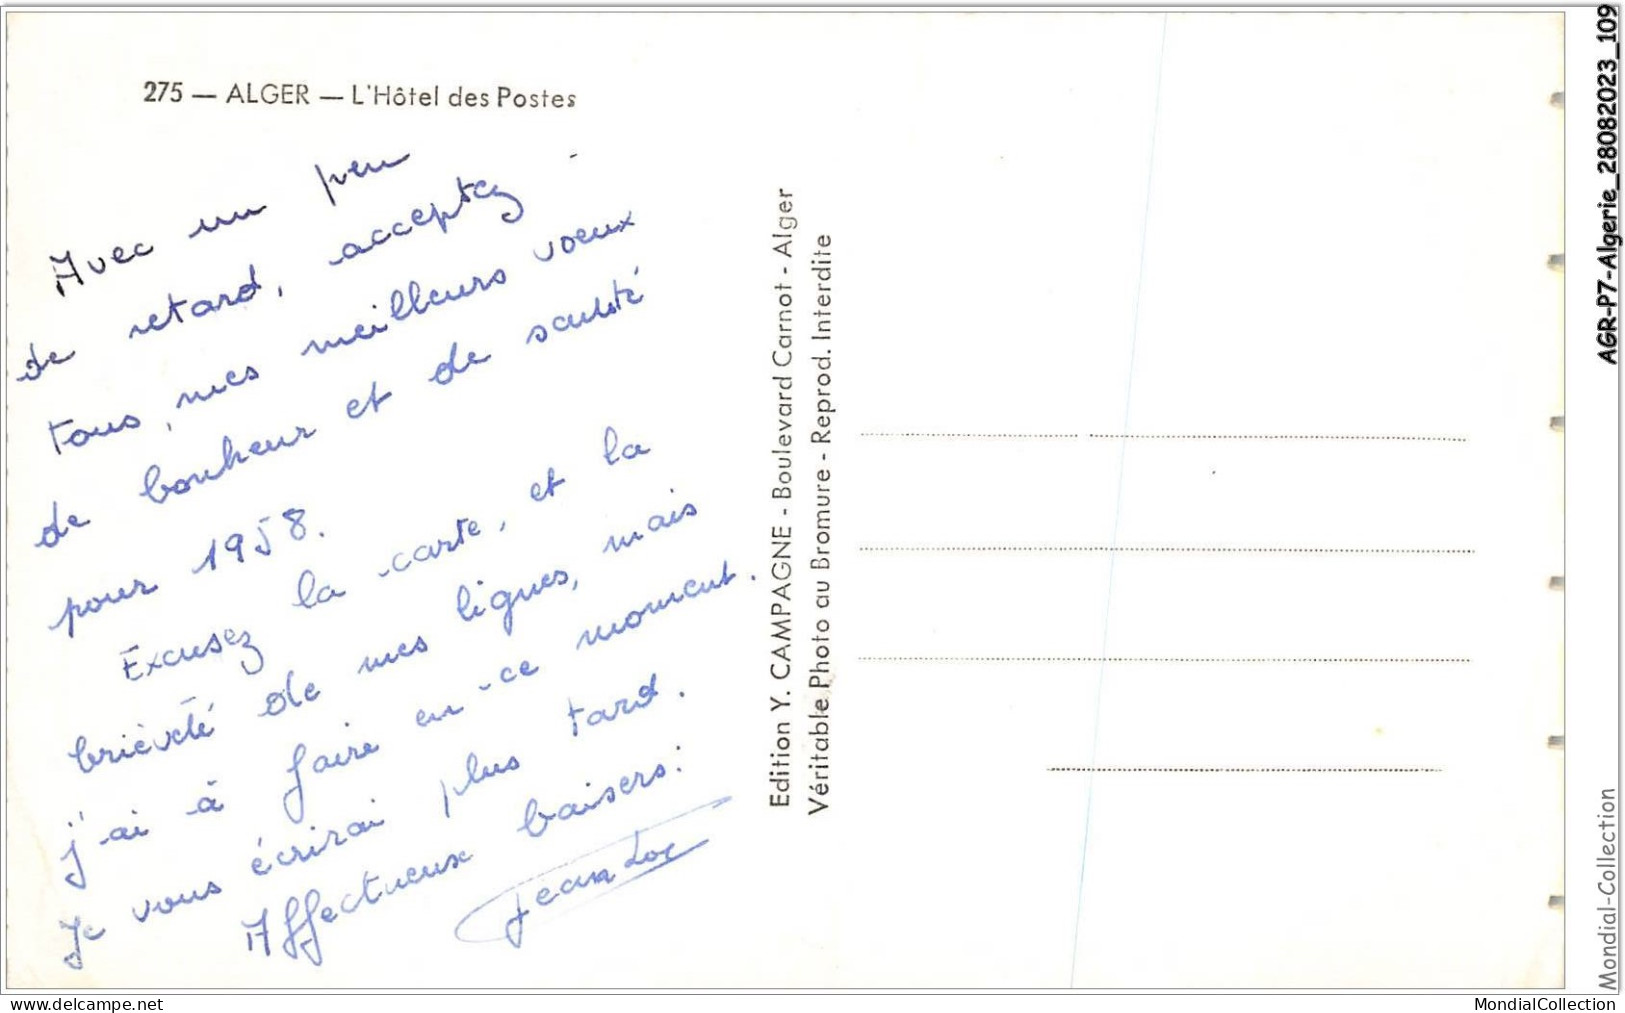 275 — ALGER — L'Hôtel des Postes
Avec un peu
de retard, acceptez
tous, mes meilleurs voeux
de bonheur et de santé
pour 1958.
Excusez la carte, et la
brièveté de mes lignes, mais
j'ai à faire en ce moment.
Je vous écrirai plus tard.
Affectueux baisers.
Jean
Edition Y. CAMPAGNE - Boulevard Carnot - Alger
Véritable Photo au Bromure - Reprod. Interdite
AGR-P7-Algerie_28082023_109
Mondial-Collection
www.delcampe.net
MondialCollection